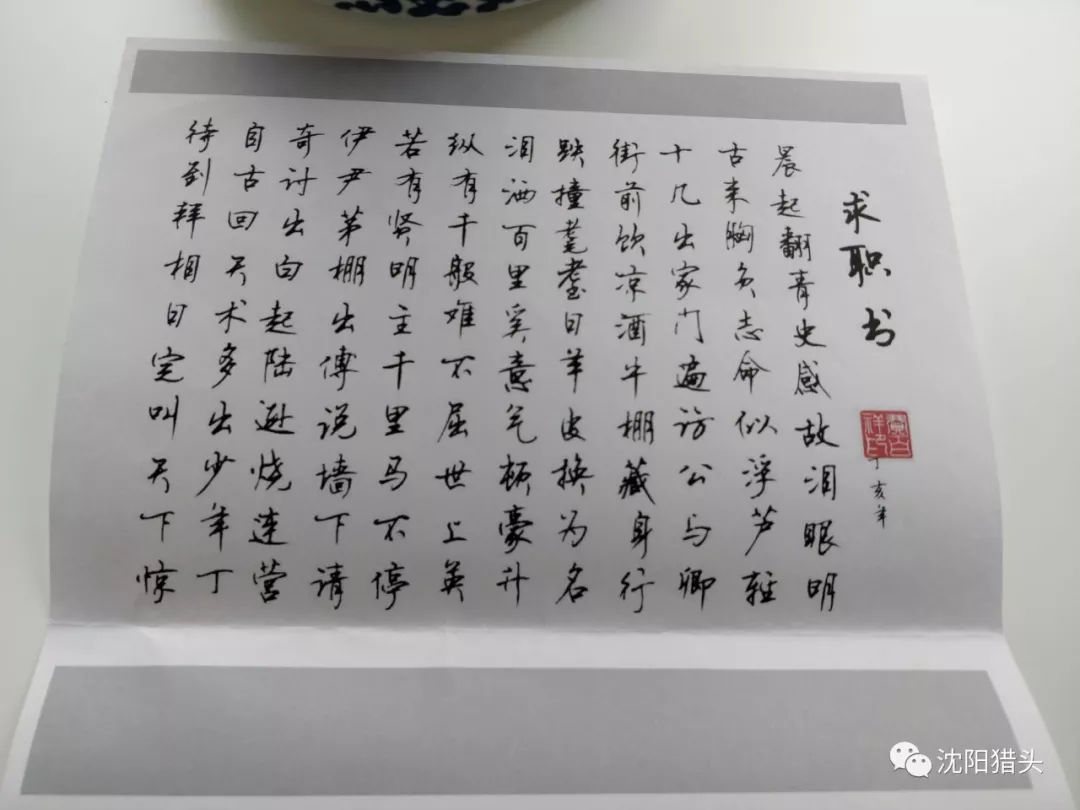 求职书
丁亥年
晨起翻青史感故泪眼明
古来胸负志命似浮芦轻
十几出家门遍访公与卿
街前饮凉酒牛棚藏身行
跌撞耄耋日羊皮换为名
泪洒百里奚意气顿豪升
纵有千般难不屈世上英
若有贤明主千里马不停
伊尹茅棚出傅说墙下请
奇计出白起陆逊烧连营
自古回天术多出少年丁
待到拜相日定叫天下惊
沈阳猎头